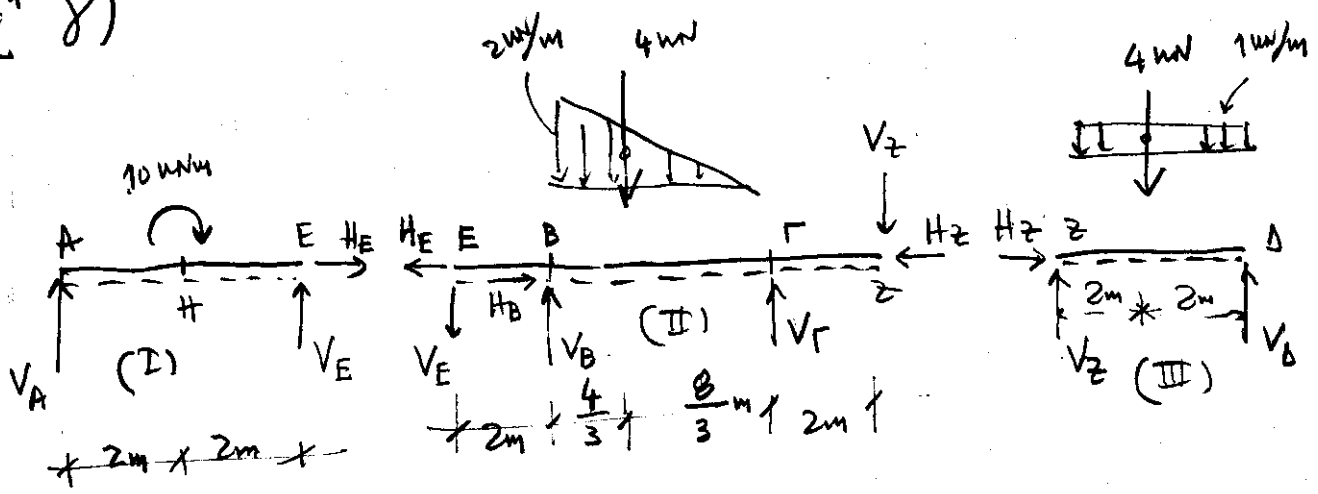 γ)
2 kN/m 4 kN 4 kN 1 kN/m
10 kNm V_Z
A E H_E H_E E B Γ H_Z H_Z Z Δ
H H_B Z 2m 2m
V_A (I) V_E V_E V_B (II) V_Γ V_Z (III) V_Δ
2m 2m 2m 4/3 8/3 m 2m